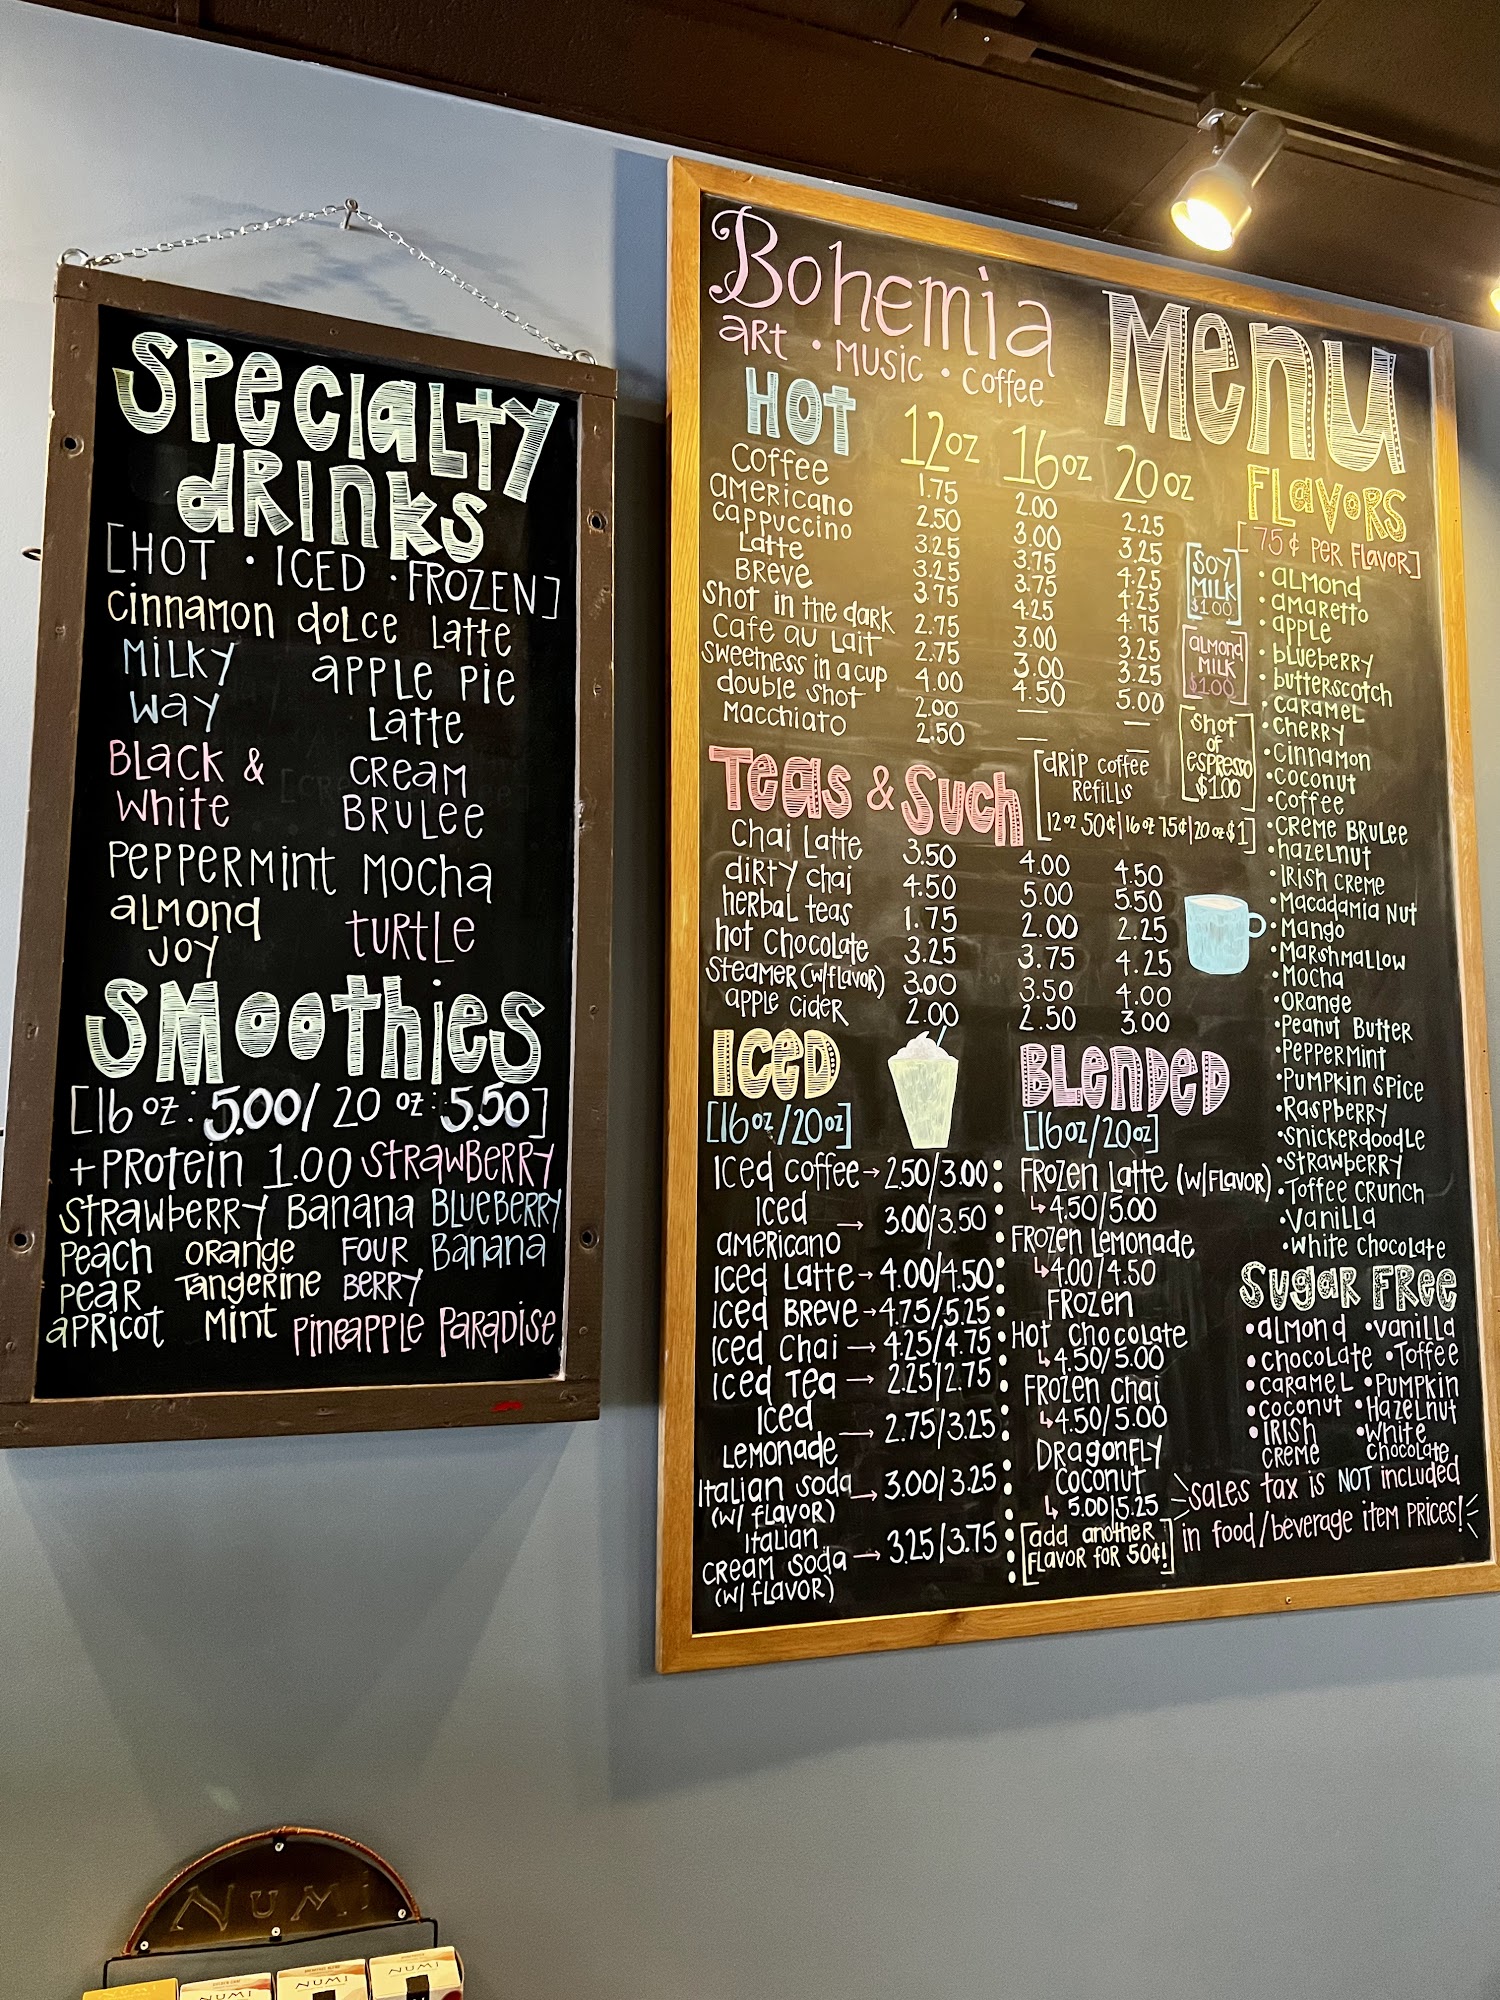 Specialty
drinks
[HOT · ICED · FROZEN]
Cinnamon dolce Latte
Milky Way
Apple Pie Latte
Black & White
Cream Brulee
Peppermint Mocha
Almond Joy
Turtle
Smoothies
[16 oz: 5.00/ 20 oz: 5.50]
+ Protein 1.00 Strawberry
Strawberry Banana Blueberry
Peach Pear Apricot
Orange Tangerine Mint
Four Berry
Banana
Pineapple Paradise
Bohemia
Art · Music · Coffee
Menu
HOT 12oz 16oz 20oz
Coffee 1.75 2.00 2.25
Americano 2.50 3.00 3.25
Cappuccino 3.25 3.75 4.25
Latte 3.25 3.75 4.25
Breve 3.75 4.25 4.75
Shot in the dark 2.75 3.00 3.25
Cafe au Lait 2.75 3.00 3.25
Sweetness in a cup 4.00 4.50 5.00
double shot 2.00 — —
Macchiato 2.50 — —
[Soy Milk $1.00]
[Almond Milk $1.00]
[Shot of espresso $1.00]
Teas & Such
[drip coffee
Refills
12oz 50¢|16oz 75¢|20oz $1]
Chai Latte 3.50 4.00 4.50
dirty chai 4.50 5.00 5.50
herbal teas 1.75 2.00 2.25
hot chocolate 3.25 3.75 4.25
Steamer (w/flavor) 3.00 3.50 4.00
apple cider 2.00 2.50 3.00
Iced
[16oz/20oz]
Iced coffee → 2.50/3.00
Iced americano → 3.00/3.50
Iced Latte → 4.00/4.50
Iced Breve → 4.75/5.25
Iced Chai → 4.25/4.75
Iced Tea → 2.25/2.75
Iced Lemonade → 2.75/3.25
Italian soda (w/ flavor) → 3.00/3.25
Italian cream soda (w/ flavor) → 3.25/3.75
Blended
[16oz/20oz]
Frozen Latte (w/flavor)
↳ 4.50/5.00
Frozen Lemonade
↳ 4.00/4.50
Frozen
Hot Chocolate
↳ 4.50/5.00
Frozen Chai
↳ 4.50/5.00
Dragonfly
Coconut
↳ 5.00|5.25
[add another
flavor for 50¢!]
Flavors
[75¢ per flavor]
• almond
• amaretto
• apple
• blueberry
• butterscotch
• caramel
• cherry
• cinnamon
• coconut
• coffee
• creme brulee
• hazelnut
• Irish creme
• Macadamia Nut
• Mango
• Marshmallow
• Mocha
• Orange
• Peanut Butter
• Peppermint
• Pumpkin Spice
• Raspberry
• Snickerdoodle
• Strawberry
• Toffee crunch
• Vanilla
• White chocolate
Sugar Free
• almond • vanilla
• chocolate • Toffee
• caramel • Pumpkin
• coconut • Hazelnut
• Irish creme • White chocolate
sales tax is NOT included
in food/beverage item prices!
NUMI
NUMI
NUMI
NUMI
NUMI